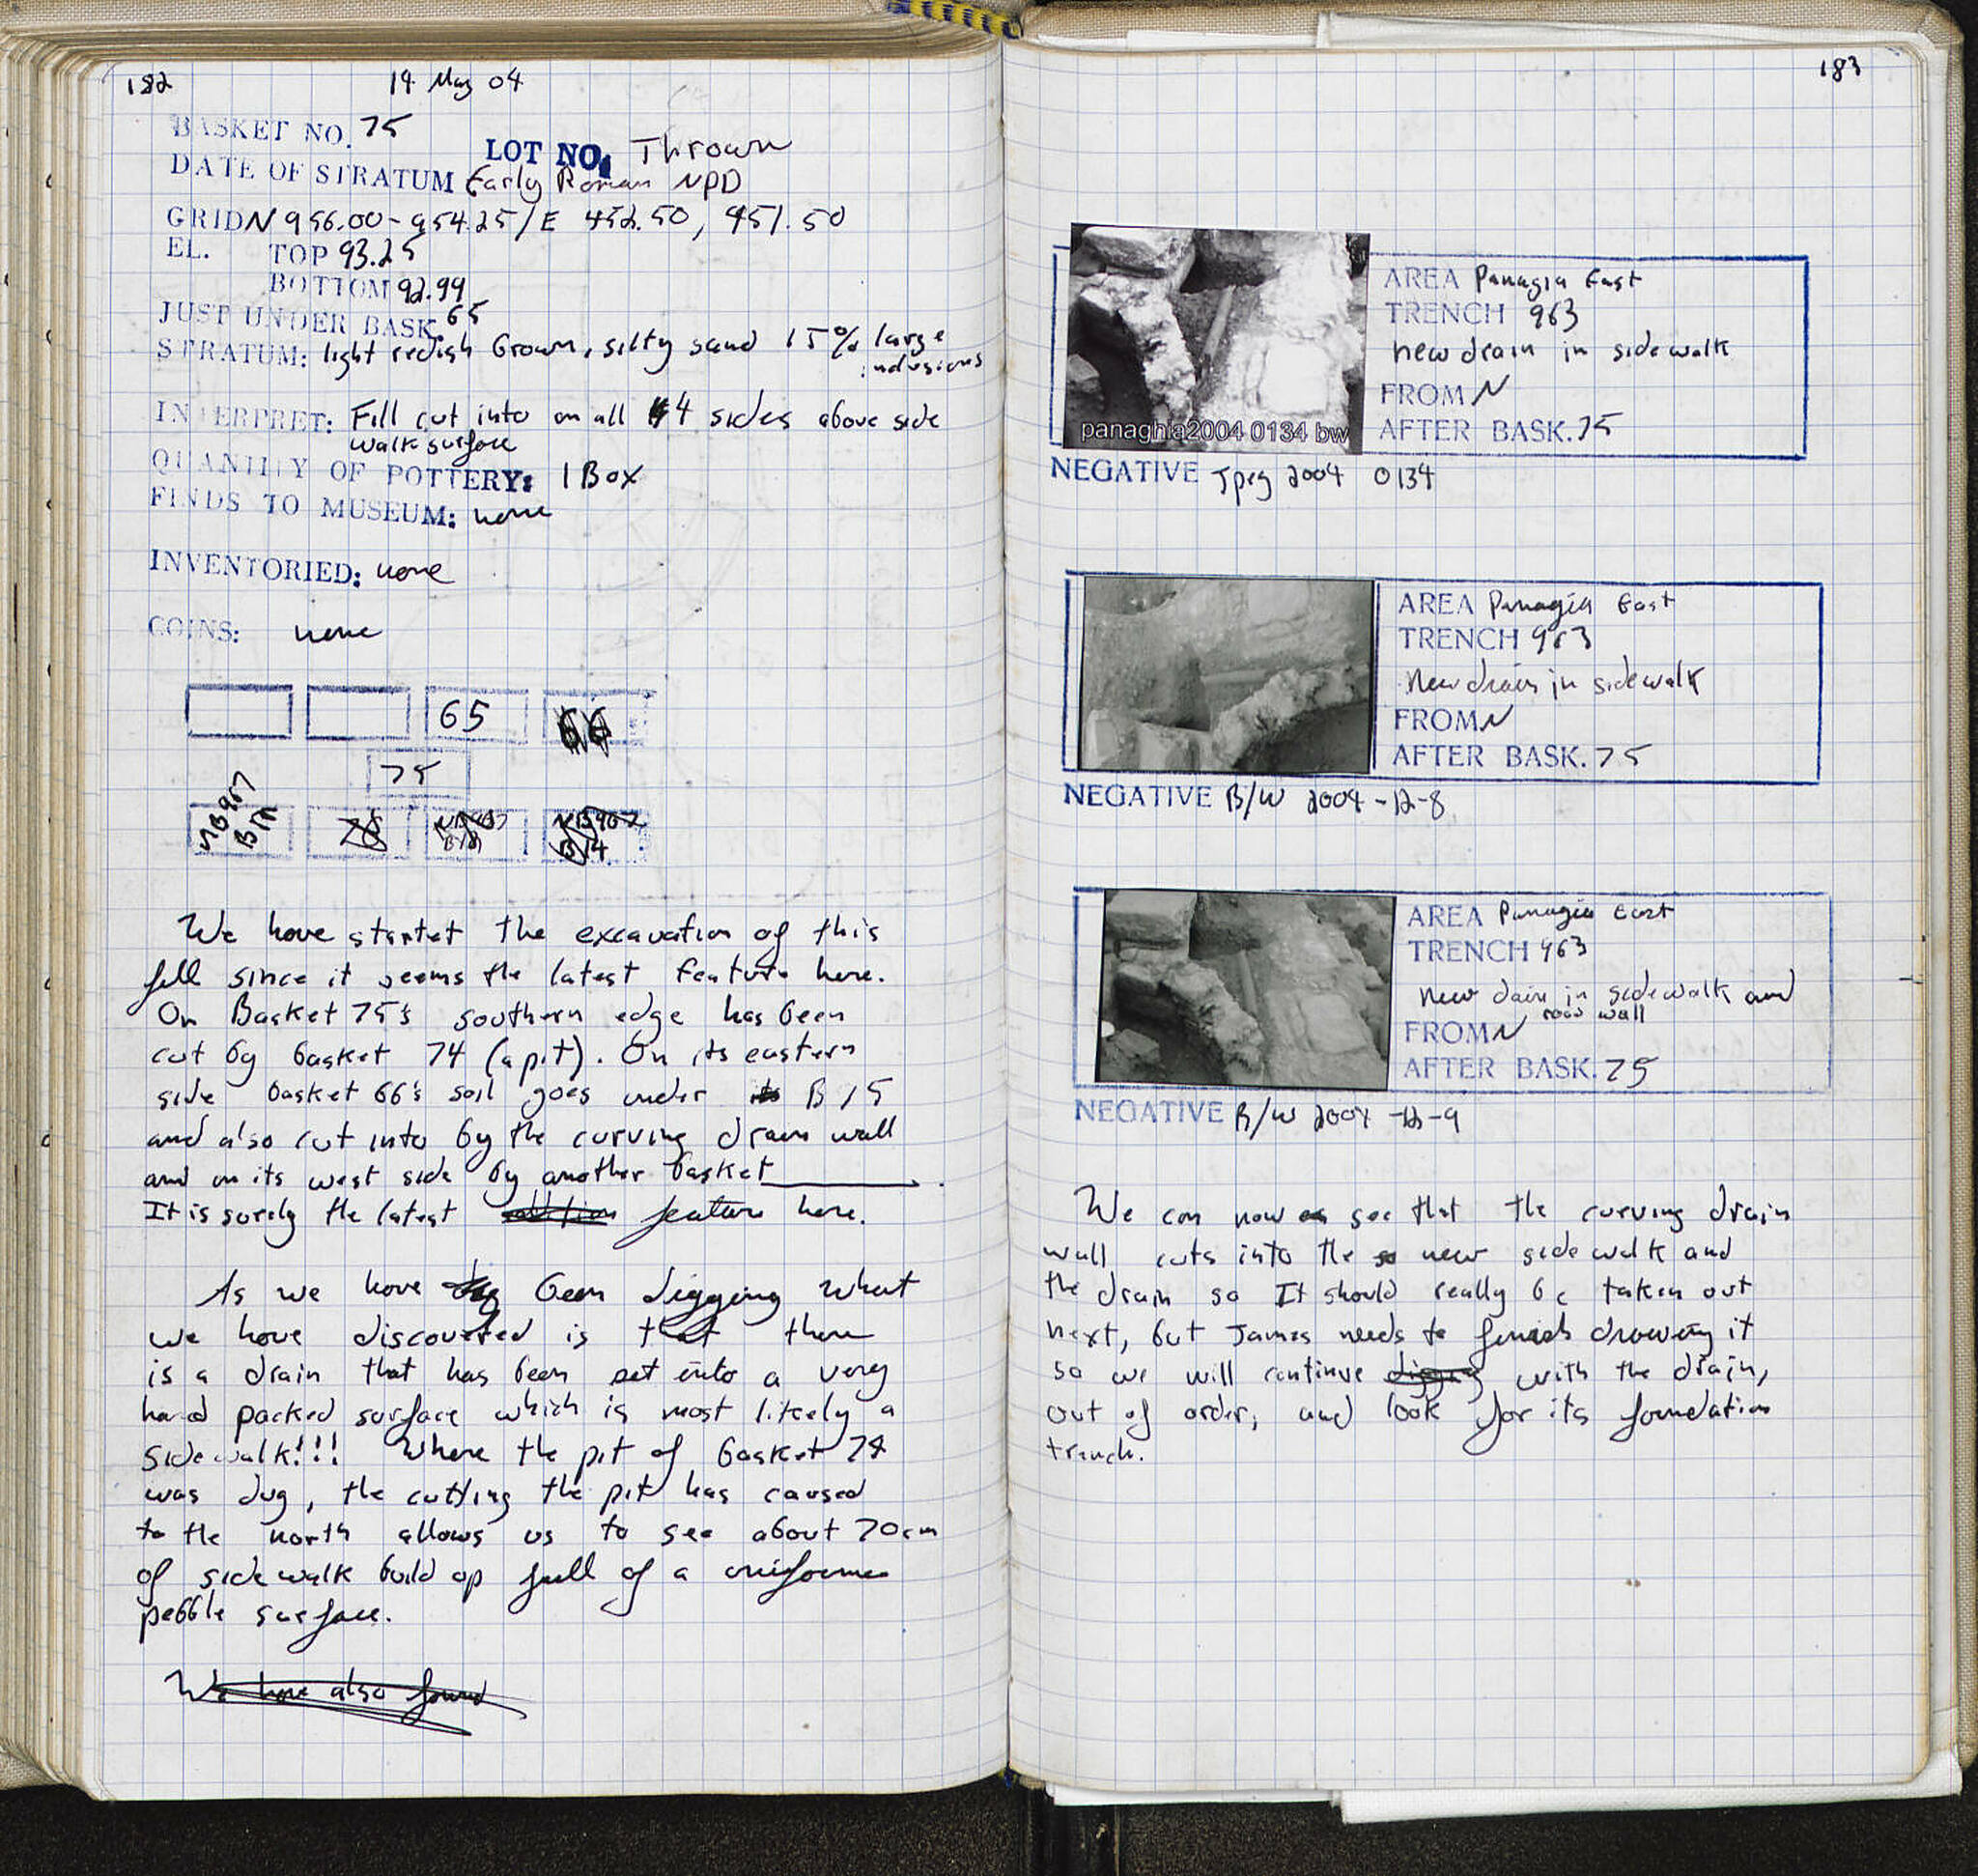 182
14 May 04
BASKET NO. 75
LOT NO. Thrown
DATE OF STRATUM Early Roman NPD
GRID N 956.00-954.25/E 452.50, 451.50
EL. TOP 93.25
BOTTOM 92.99
JUST UNDER BASK. 65
STRATUM: light redish brown, silty sand 15% large
inclusions
INTERPRET: Fill cut into on all 4 sides above side
walk surface
QUANTITY OF POTTERY: 1 Box
FINDS TO MUSEUM: none
INVENTORIED: none
COINS: none
65 66
75
NB 967
We have startet the excavation of this
fill since it seems the latest feature here.
On Basket 75's southern edge has been
cut by basket 74 (a pit). On its eastern
side basket 66's soil goes under B 75
and also cut into by the curving drain wall
and on its west side by another basket______.
It is surely the latest feature here.
As we have been digging what
we have discovered is that there
is a drain that has been set into a very
hard packed surface which is most likely a
sidewalk!!! Where the pit of basket 74
was dug, the cutting the pit has caused
to the north allows us to see about 70cm
of sidewalk build up full of a uniforme
pebble surface.
We have also found
183
panaghia2004 0134 bw
AREA Panagia East
TRENCH 963
new drain in sidewalk
FROM N
AFTER BASK. 75
NEGATIVE Jpeg 2004 0134
AREA Panagia East
TRENCH 963
New drain in sidewalk
FROM N
AFTER BASK. 75
NEGATIVE B/W 2004-12-8
AREA Panagia East
TRENCH 963
new dain in sidewalk and
road wall
FROM N
AFTER BASK. 75
NEGATIVE B/W 2004-12-9
We can now see that the curving drain
wall cuts into the new sidewalk and
the drain so It should really be taken out
next, but James needs to finish drawing it
so we will continue digging with the drain,
out of order, and look for its foundation
trench.